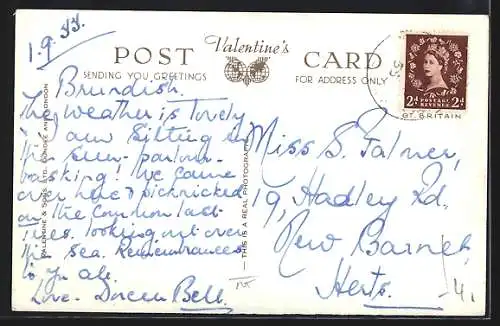 1.9.55
POST Valentine's CARD
SENDING YOU GREETINGS
FOR ADDRESS ONLY
2d POSTAGE REVENUE 2d
GT. BRITAIN
Brundish.
The weather is lovely
I am sitting in
the sun-parlour
basking! We came
over here & picnicked
on the common last
looking out over
the sea. Remembrances
to you all.
Love. Doreen Bell.
VALENTINE & SONS LTD. DUNDEE AND LONDON
THIS IS A REAL PHOTOGRAPH
Miss S. Falner,
19, Hadley Rd,
New Barnet,
Herts.